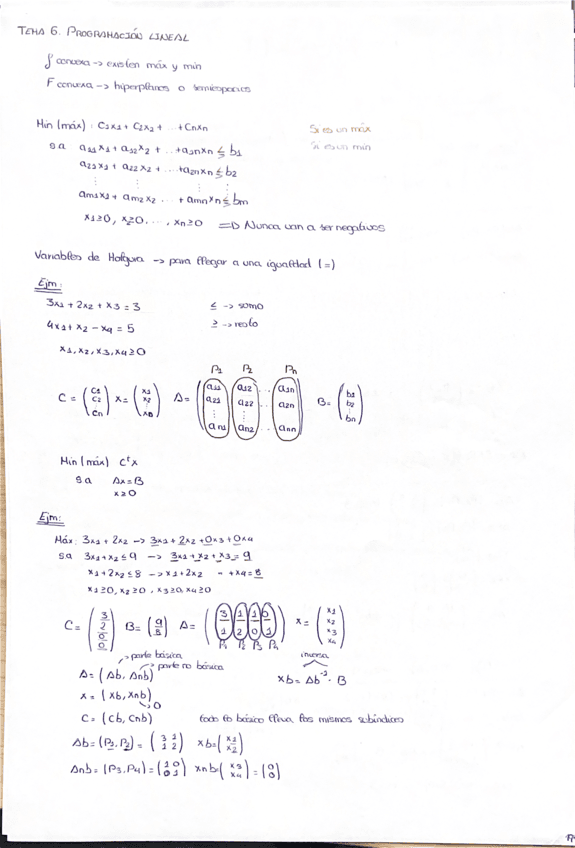 TEMA 6. PROGRAMACIÓN LINEAL
f convexa -> existen máx y min
F convexa -> hiperplanos o semiespacios
Min (máx) : C1x1 + C2x2 + ... + Cnxn
Si es un máx
Si es un min
s a a11x1 + a12x2 + ... + a1nxn ≤ b1
a21x1 + a22x2 + ... + a2nxn ≤ b2
⋮ ⋮ ⋮ ⋮
am1x1 + am2x2 ... + amnxn ≤ bm
x1≥0, x2≥0, ..., xn≥0 => Nunca van a ser negativos
Variables de Holgura -> para llegar a una igualdad (=)
Ejm:
3x1 + 2x2 + x3 = 3 ≤ -> sumo
4x1 + x2 - x4 = 5 ≥ -> resto
x1, x2, x3, x4 ≥ 0
P1 P2 Pn
C = (C1 C2 ⋮ Cn) x = (x1 x2 ⋮ xn) A = (a11 a21 ⋮ an1 a12 a22 ⋮ an2 ... a1n a2n ⋮ ann) B = (b1 b2 ⋮ bn)
Min (máx) Cᵗx
s a Ax = B
x ≥ 0
Ejm:
Máx: 3x1 + 2x2 -> 3x1 + 2x2 + 0x3 + 0x4
s a 3x1 + x2 ≤ 9 -> 3x1 + x2 + x3 = 9
x1 + 2x2 ≤ 8 -> x1 + 2x2 " + x4 = 8
x1≥0, x2≥0, x3≥0, x4≥0
C = (3 2 0 0) B = (9 8) A = (3 1 1 0 1 2 0 1) x = (x1 x2 x3 x4)
P1 P2 P3 P4
parte básica
parte no básica
inversa
A = (Ab, Anb) xb = Ab⁻¹ · B
x = (xb, xnb)
0
C = (Cb, Cnb) todo lo básico lleva los mismos subíndices
Ab = (P1, P2) = (3 1 1 2) xb = (x1 x2)
Anb = (P3, P4) = (1 0 0 1) xnb = (x3 x4) = (0 0)